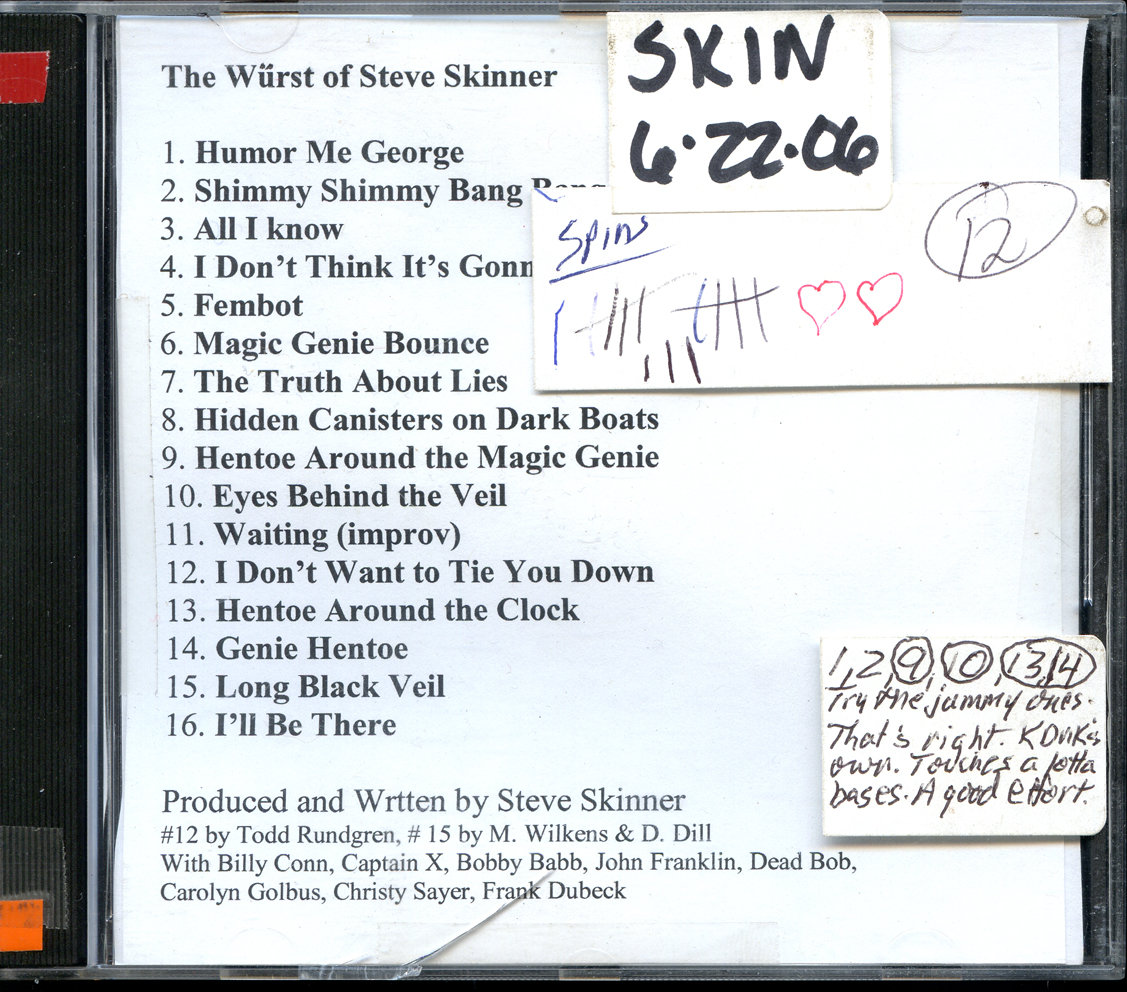 The Wűrst of Steve Skinner
1. Humor Me George
2. Shimmy Shimmy Bang Bang
3. All I know
4. I Don't Think It's Gonn
5. Fembot
6. Magic Genie Bounce
7. The Truth About Lies
8. Hidden Canisters on Dark Boats
9. Hentoe Around the Magic Genie
10. Eyes Behind the Veil
11. Waiting (improv)
12. I Don't Want to Tie You Down
13. Hentoe Around the Clock
14. Genie Hentoe
15. Long Black Veil
16. I'll Be There
Produced and Wrtten by Steve Skinner
#12 by Todd Rundgren, # 15 by M. Wilkens & D. Dill
With Billy Conn, Captain X, Bobby Babb, John Franklin, Dead Bob,
Carolyn Golbus, Christy Sayer, Frank Dubeck
SKIN
6·22·06
Spins
12
1,2,9,10,13,14
Try the jammy ones.
That's right. KDNK's
own. Touches a lotta
bases. A good effort.